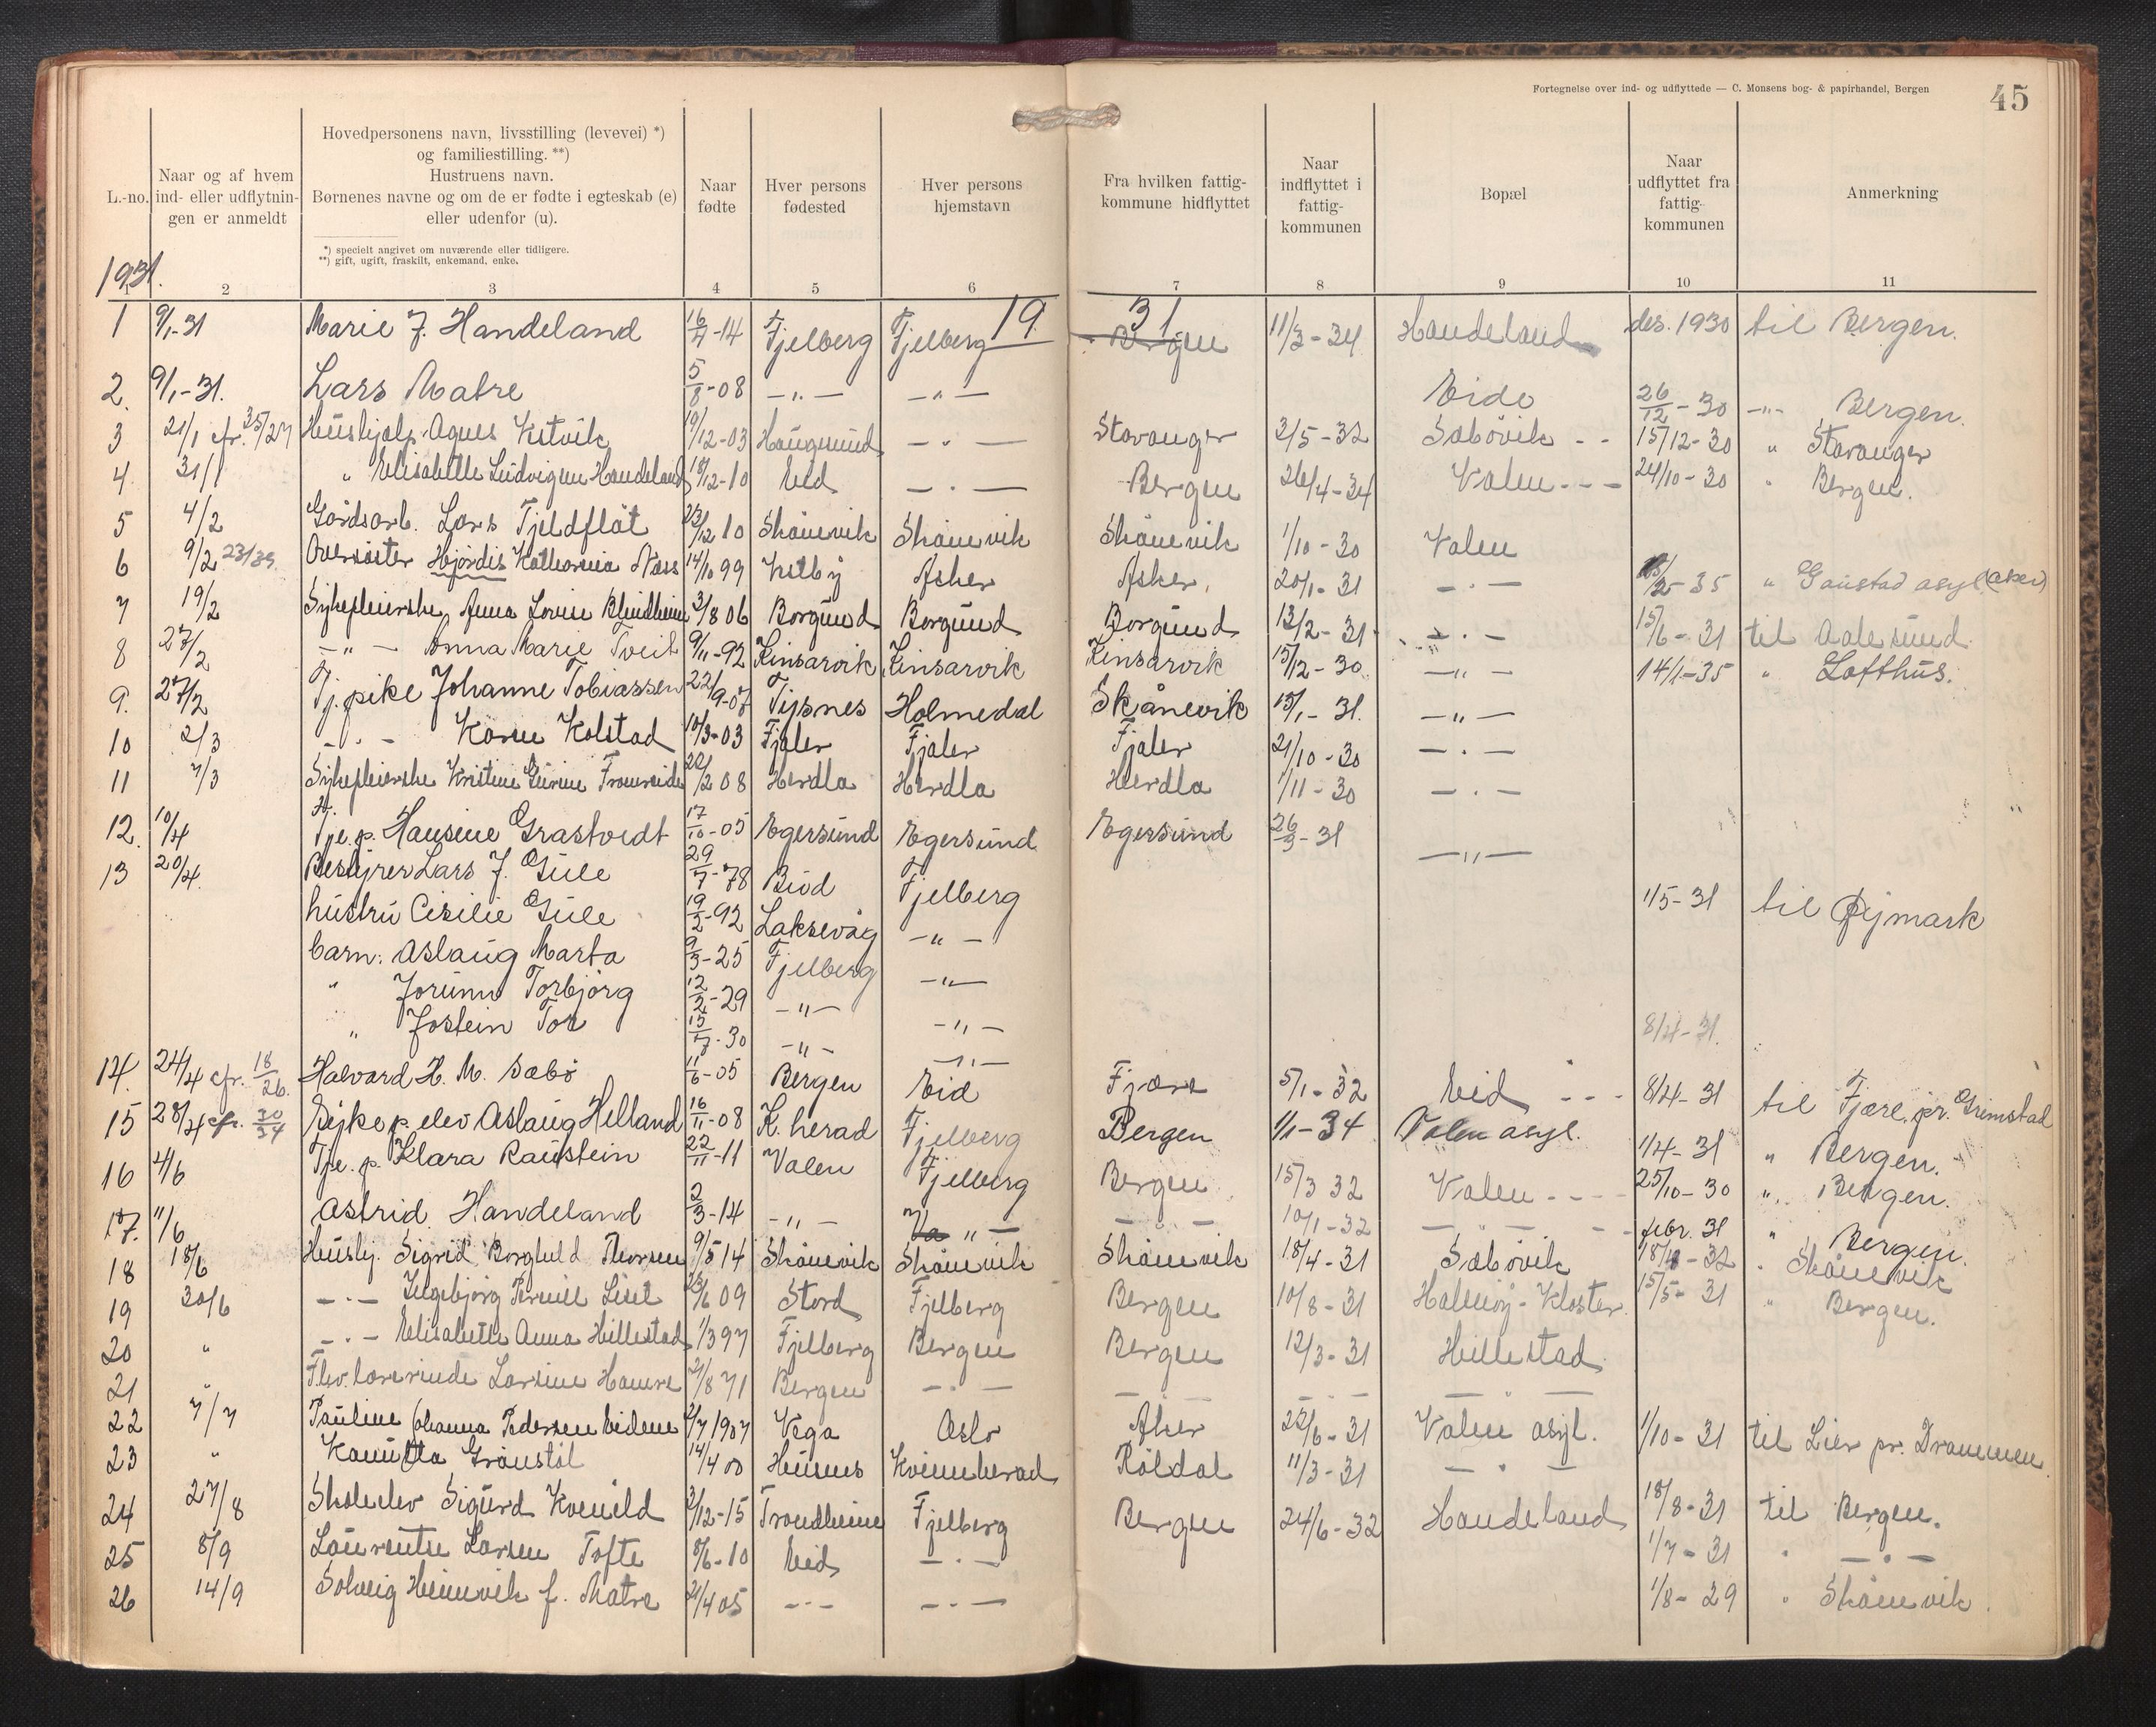 Fortegnelse over ind- og udflyttede — C. Monsens bog- & papirhandel, Bergen
45
L.-no.
Naar og af hvem ind- eller udflytnin-gen er anmeldt
Hovedpersonens navn, livsstilling (levevei) *)
og familiestilling. **)
Hustruens navn.
Børnenes navne og om de er fødte i egteskab (e)
eller udenfor (u).
*) specielt angivet om nuværende eller tidligere.
**) gift, ugift, fraskilt, enkemand, enke.
Naar fødte
Hver persons fødested
Hver persons hjemstavn
Fra hvilken fattig-kommune hidflyttet
Naar indflyttet i fattig-kommunen
Bopæl
Naar udflyttet fra fattig-kommunen
Anmerkning
1931.
1 2 3 4 5 6 7 8 9 10 11
19 31
1 9/1-31 Marie J. Handeland 16/4-14 Fjelberg Fjelberg Bergen 11/3-34 Handeland des. 1930 til Bergen.
2. 9/1-31. Lars Matre 5/8-08 —„— —„— Eide 26/12-30 —„— Bergen.
3 21/1 cfr. 35/27 Hushjelp Agnes Vetvik 19/12-03 Haugesund —„— Stavanger 3/5-32 Sæbövik -- 15/12-30 „ Stavanger
4 31/1 „ Elisabeth Ludvigne Handeland 18/12-10 Eid —„— Bergen 26/4-34 Valen --- 24/10-30 „ Bergen.
5 4/2 Gårdsarb. Lars Fjeldflåt 23/12 10 Skånevik Skånevik Skånevik 1/10-30 Valen
6 9/2 23/35 Oversöster Hjördis Katharina Næss 14/10 99 Vestby Asker Asker. 20/1-31 —„— 2-35 „ Gaustad asyl (Aker)
7 19/2 Sykepleierske Anna Lovise Blindheim 3/8 06 Borgund Borgund Borgund 13/2-31 —„— 15/6-31 til Aalesund.
8 27/2 —„— Anna Marie Tveit 9/11-92 Kinsarvik Kinsarvik Kinsarvik 15/12-30. —„— 14/1-35 „ Lofthus.
9. 27/2 Tj.pike Johanne Tobiassen 22/9-07 Tysnes Holmedal Skånevik 15/1-31. —„—
10 2/3 —„— Karen Kolstad 10/3-03 Fjaler Fjaler Fjaler 21/10-30 —„—
11 7/3 Sykepleierske Kristine Gurine Fromreide 22/2 08 Herdla Herdla Herdla 1/11-30 —„—
12. 10/4 Tje.p. Hansine Grastvedt 17/10-05 Egersund Egersund Egersund 26/3-31 —„—
13 20/4. Bestyrer Lars J. Gule 29/7-78 Bud Fjelberg 1/5-31 til Øymark
hustru Cisilie Gule 19/2-92 Laksevåg —„—
barn: Aslaug Marta 9/3-25 Fjelberg —„—
„ Jorunn Torbjörg 12/2-29 —„— —„—
„ Jostein Tor 15/7-30 —„— —„— 8/4-31.
14. 24/4 cfr. 18/26. Halvard H. M. Sæbö 11/6-05 Bergen Eid Fjære 5/1-32 Eid --- 8/4-31 til Fjære pr. Grimstad
15 28/4 cfr. 30/34 Sykep.elev Aslaug Helland 16/11-08 K.herad Fjelberg Bergen 1/1-34 Valen asyl. 1/4-31 „ Bergen.
16 4/6 Tje.p. Klara Raustein 22/11-11 Valen Fjelberg Bergen 15/3 32 Valen --- 25/10-30 „ Bergen.
17. 11/6 Astrid Handeland 2/3-14 —„— —„— —„— 10/1-32 —„— - febr. 31 „ Bergen.
18 18/6 Hushj. Sigrid Borghild Thorsen 9/5 14 Skånevik Skånevik Skånevik 18/4-31 Sæbövik -32 „ Skånevik
19 30/6 —„— Ingebjörg Pernille Liset 23/6 09 Stord Fjelberg Bergen 10/8-31 Halsnöy-Kloster. 15/5-31 „ Bergen.
20 „ —„— Elisabeth Anna Hillestad 1/3 97 Fjelberg Bergen Bergen 12/3-31 Hillestad
21 „ Flov.lærerinde Larsine Hamre 2/8 71 Bergen —„— —„— —„— —„—
22 7/7 Pauline Johanna Pedersen Eidem 2/7 1907 Vega Oslo Aker 22/6-31 Valen asyl. 1/10-31 til Lier pr. Drammen.
23 „ Kamilla Grönstöl 14/4 00 Husnes Kvinnherad Röldal 11/3-31 —„—
24 27/8 Skoleelev Sigurd Kvenild 3/12-15 Trondheim Fjelberg Bergen 24/6-32 Handeland 18/8-31 til Bergen.
25 8/9 Laurentse Larsen Tofte 8/6-10 Eid —„— 1/7-31 „ —„—
26 14/9 Solveig Heimvik f. Matre 21/4 05 —„— —„— 1/8-29 „ Skånevik.